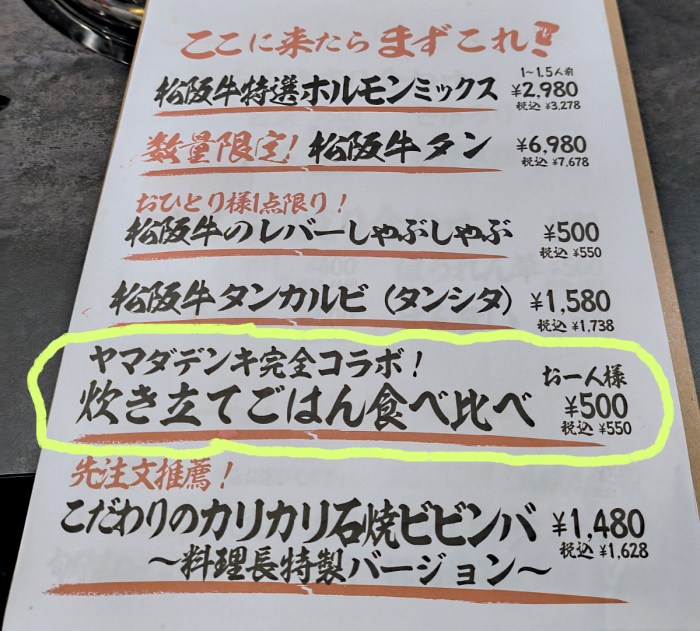 ここに来たらまずこれ!
1~1.5人前
松阪牛特選ホルモンミックス ¥2,980
税込 ¥3,278
数量限定! 松阪牛タン ¥6,980
税込 ¥7,678
おひとり様1点限り!
松阪牛のレバーしゃぶしゃぶ ¥500
税込 ¥550
松阪牛タンカルビ(タンシタ) ¥1,580
税込 ¥1,738
ヤマダデンキ完全コラボ!
お一人様
炊き立てごはん食べ比べ ¥500
税込 ¥550
先注文推薦!
こだわりのカリカリ石焼ビビンバ ¥1,480
税込 ¥1,628
~料理長特製バージョン~